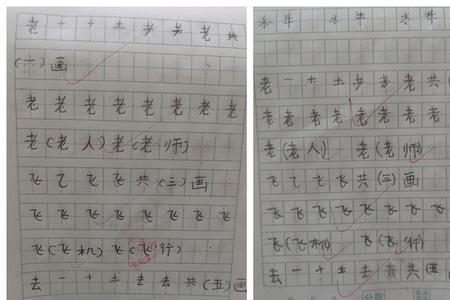 老 一 十 土 耂 耂 老 共
(六)画
老 老 老 老 老 老 老 老
老(老人)老(老师)
飞 乙 飞 飞 共(三)画
飞 飞 飞 飞 飞 飞 飞 飞
飞(飞机)飞(飞行)
去 一 十 土 去 去 共(五)画
水 牛 水 牛 水 牛
老 一 十 土 耂 老 老 共(
老 老 老 老 老 老 老 老
老(老人) 老(老师)
飞 乙 飞 飞 共(三)画
飞 飞 飞 飞 飞 飞 飞 飞
飞(飞机) 飞(飞行)
去 一 十 土 去 去 共(五)画